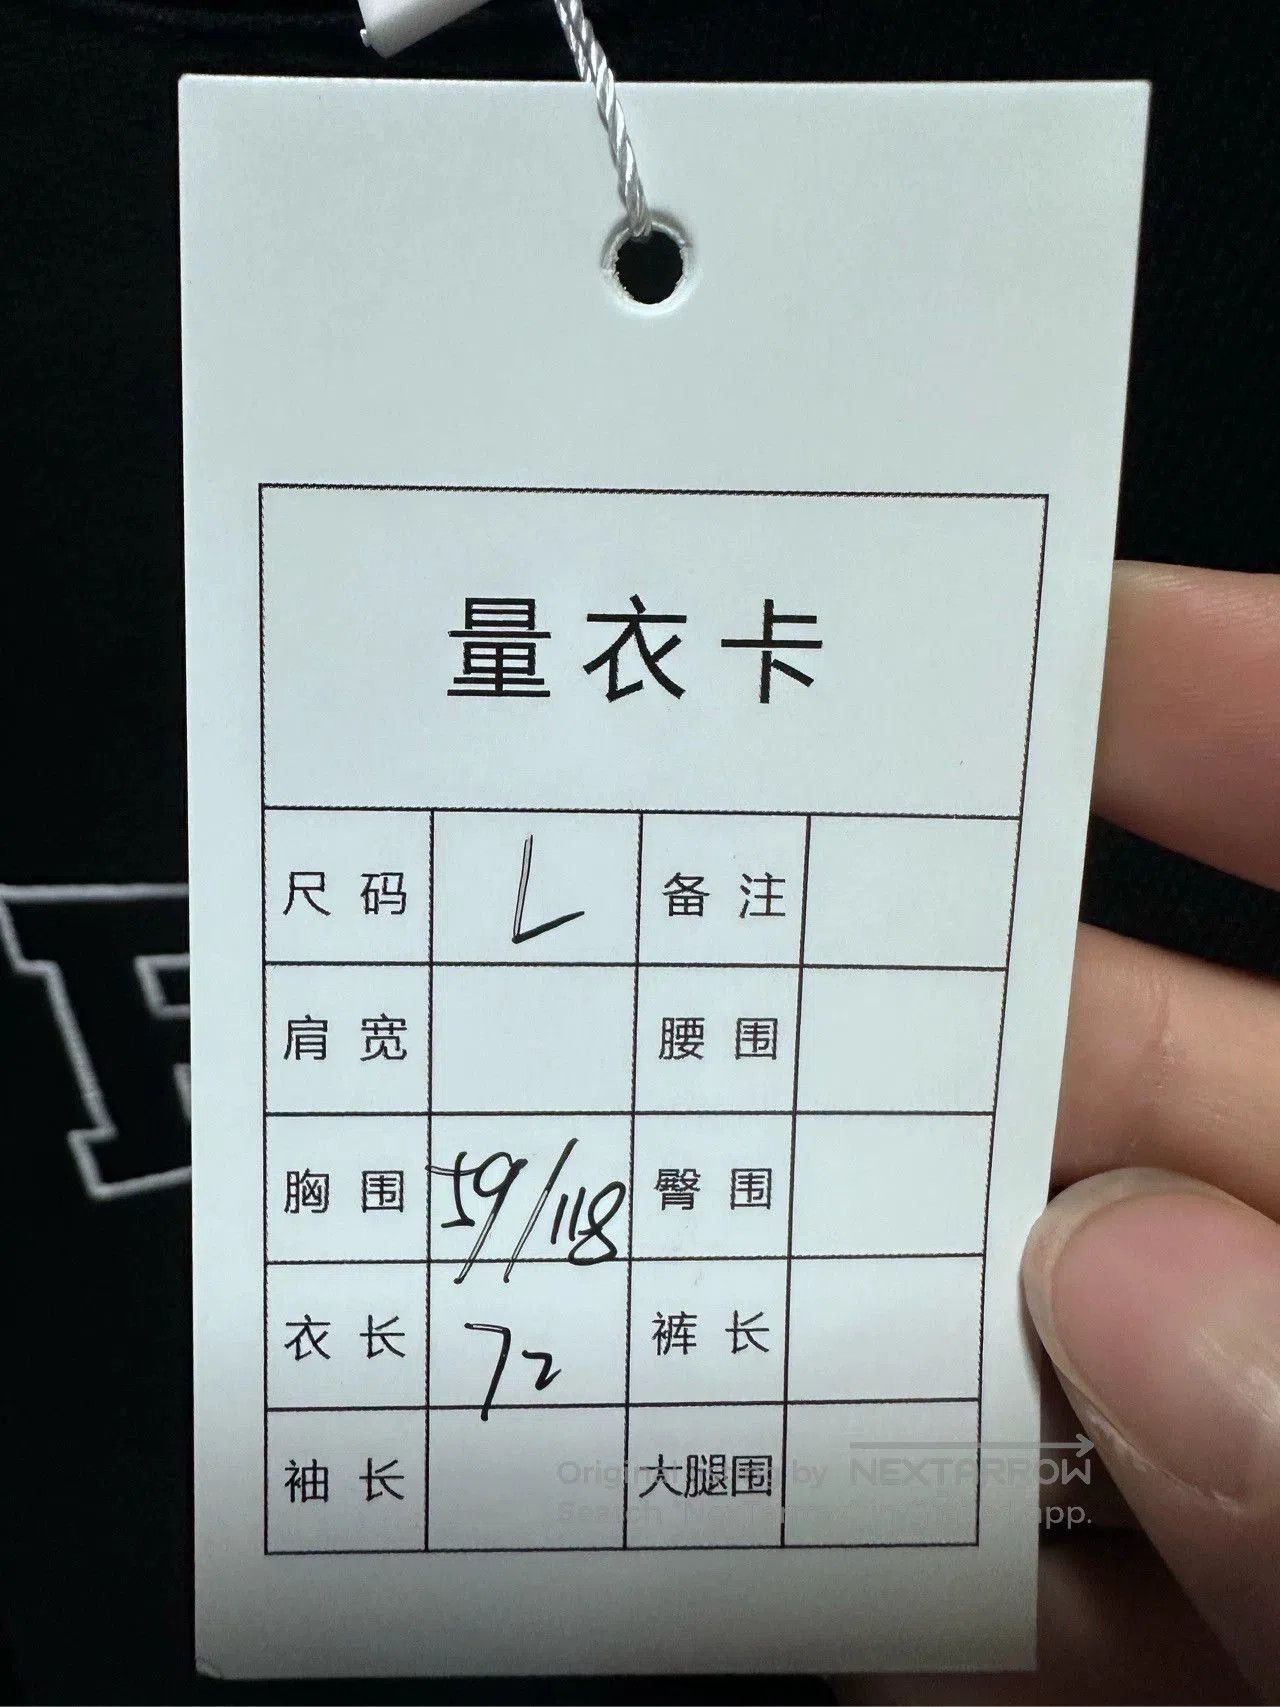 量衣卡
尺码 L 备注
肩宽 腰围
胸围 59/118 臀围
衣长 72 裤长
袖长 大腿围
Original by NEXTARROW
Search app.